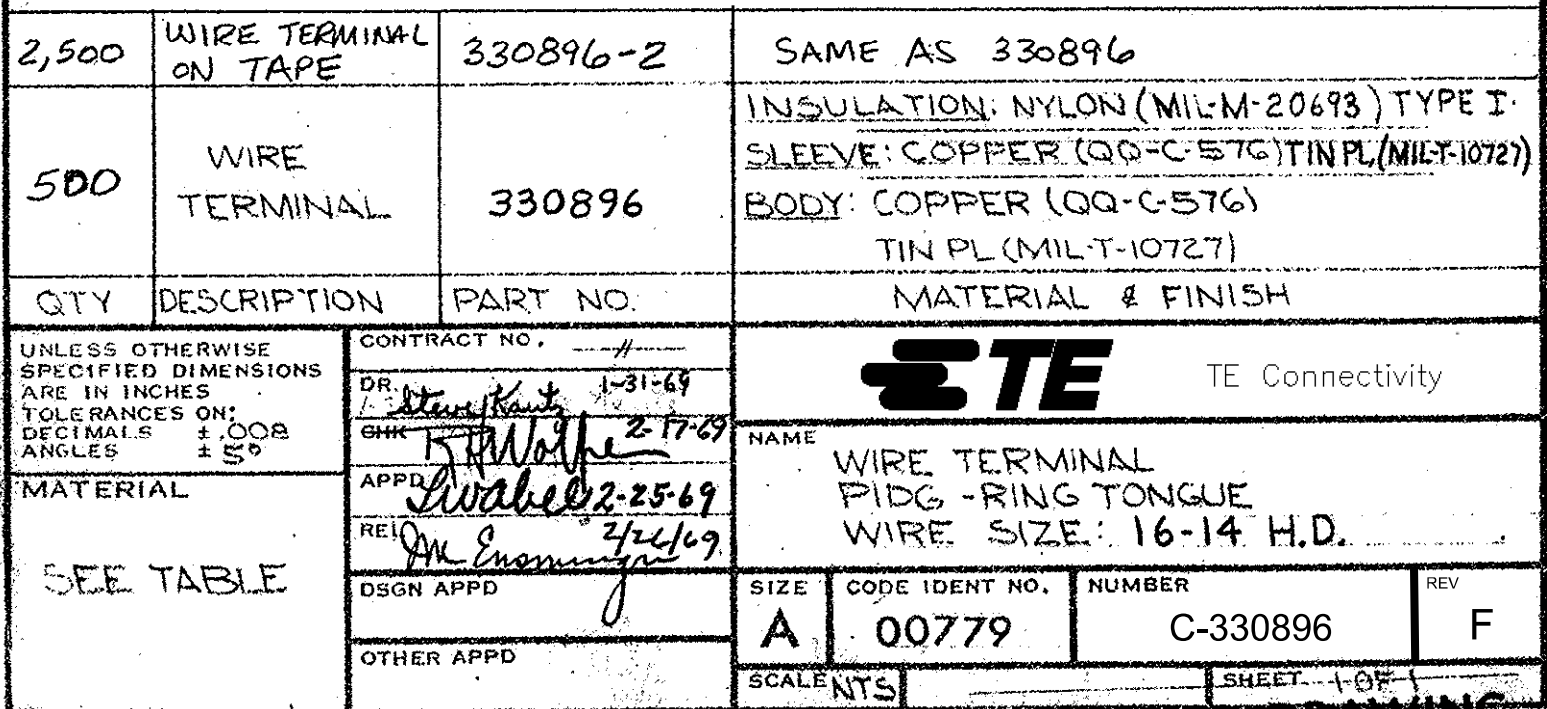 2,500 WIRE TERMINAL ON TAPE 330896-2 SAME AS 330896
500 WIRE TERMINAL 330896
INSULATION: NYLON (MIL-M-20693) TYPE I.
SLEEVE: COPPER (QQ-C-576) TIN PL (MIL-T-10727)
BODY: COPPER (QQ-C-576)
TIN PL (MIL-T-10727)
QTY DESCRIPTION PART NO. MATERIAL & FINISH
UNLESS OTHERWISE
SPECIFIED DIMENSIONS
ARE IN INCHES
TOLERANCES ON:
DECIMALS ± .008
ANGLES ± 5°
MATERIAL
SEE TABLE
CONTRACT NO.
DR. Steve Kautz 1-31-69
CHK R H Wolfe 2-17-69
APPD 2-25-69
REL 2/26/69
DSGN APPD
OTHER APPD
TE TE Connectivity
NAME
WIRE TERMINAL
PIDG - RING TONGUE
WIRE SIZE: 16-14 H.D.
SIZE A
CODE IDENT NO. 00779
NUMBER C-330896
REV F
SCALE NTS
SHEET 1 OF 1